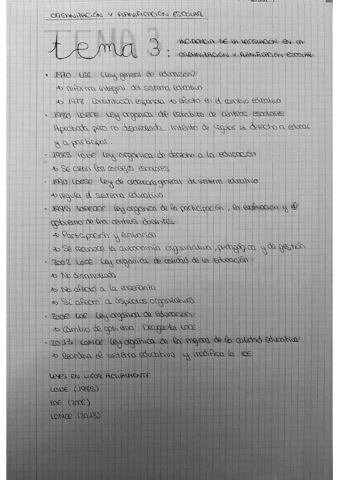 ORGANIZACIÓN Y PLANIFICACIÓN ESCOLAR
TEMA 3
tema 3: INCIDENCIA DE LA LEGISLACIÓN EN LA
ORGANIZACIÓN Y PLANIFICACIÓN ESCOLAR
· 1970 LGE (Ley general de educación)
→ reforma integral del sistema educativo
→ 1978 Constitución española → efecto en el sistema educativo
· 1980 LOECE Ley orgánica de estatuto de centros escolares
Aprobada pero no desarrollada. Intento de regular el derecho a educar
y a participar
· 1985 LODE Ley orgánica de derecho a la educación
→ Se crean los consejos escolares
· 1990 LOGSE Ley de general de sistema educativo
→ regula el sistema educativo
· 1995 LOPEGCE Ley orgánica de la participación, la evaluación y el
gobierno de los centros docentes
→ Participación y evaluación
→ Se reconoce la autonomía organizativa, pedagógica y de gestión
· 2002 LOCE Ley orgánica de calidad de la Educación
→ No desarrollada
→ No afectó a la enseñanza
→ Sí afectó a aspectos organizativos
· 2006 LOE Ley orgánica de Educación
→ Cambio de gobierno. Deroga la LOCE
· 2013 LOMCE Ley orgánica de la mejora de la calidad educativa
→ el sistema educativo y modifica la LOE
LEYES EN VIGOR ACTUALMENTE
LODE (1985)
LOE (2006)
LOMCE (2013)